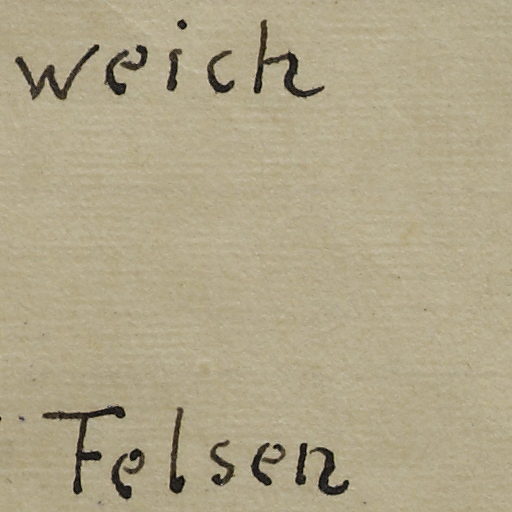 weich
Felsen